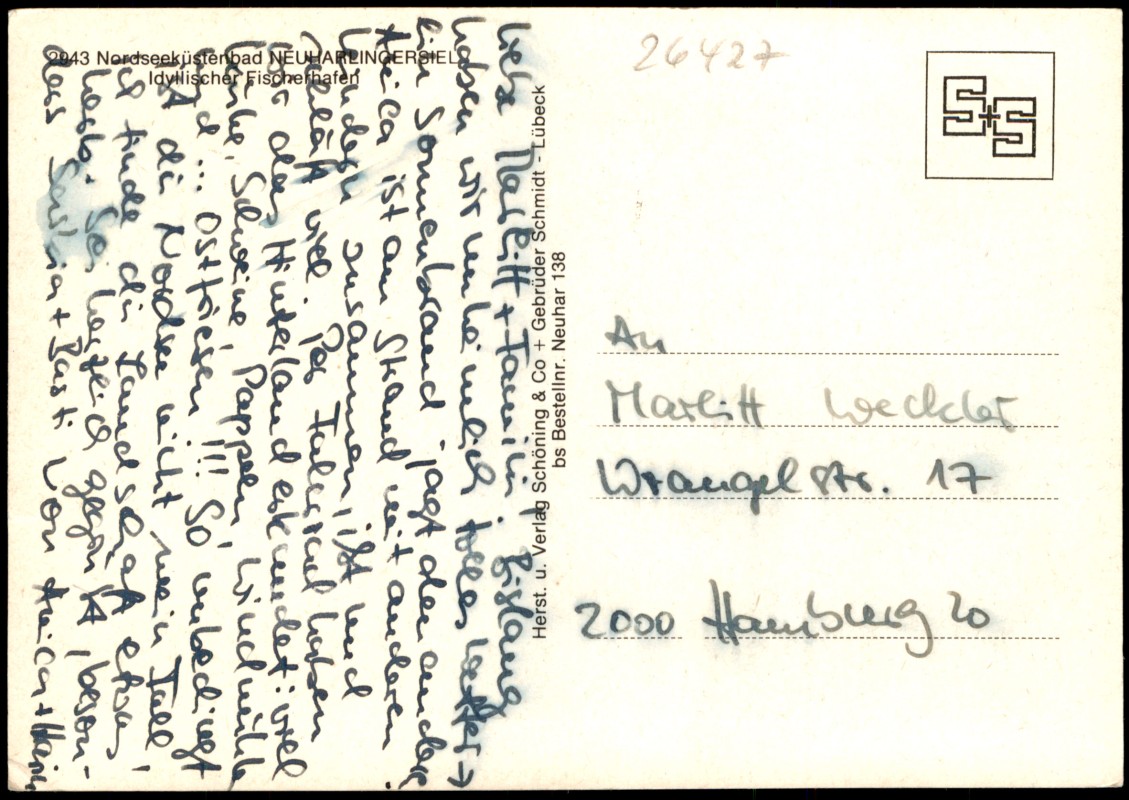 2943 Nordseeküstenbad NEUHARLINGERSIEL
Idyllischer Fischerhafen
26427
S+S
Liebe Marlitt + Familie, Bislang
haben wir unheimlich tolles Wetter →
ein Sonnenbrand jagt den anderen
Anica ist am Strand mit anderen
Kindern zusammen, ißt und
schläft viel. Per Fahrrad haben
wir das Hinterland erkundet: viel
Kühe, Schweine, Pappeln, Windmühlen
und ... Ostfriesen!!! So unbedingt
ist die Nordsee nicht mein Fall,
ich finde die Landschaft etwas
herb. Sei herzlich gegrüßt, beson-
ders Saskia + Basti von Anica +
Herst. u. Verlag Schöning & Co + Gebrüder Schmidt - Lübeck
bs Bestellnr. Neuhar 138
An
Marlitt Weckler
Wrangelstr. 17
2000 Hamburg 20